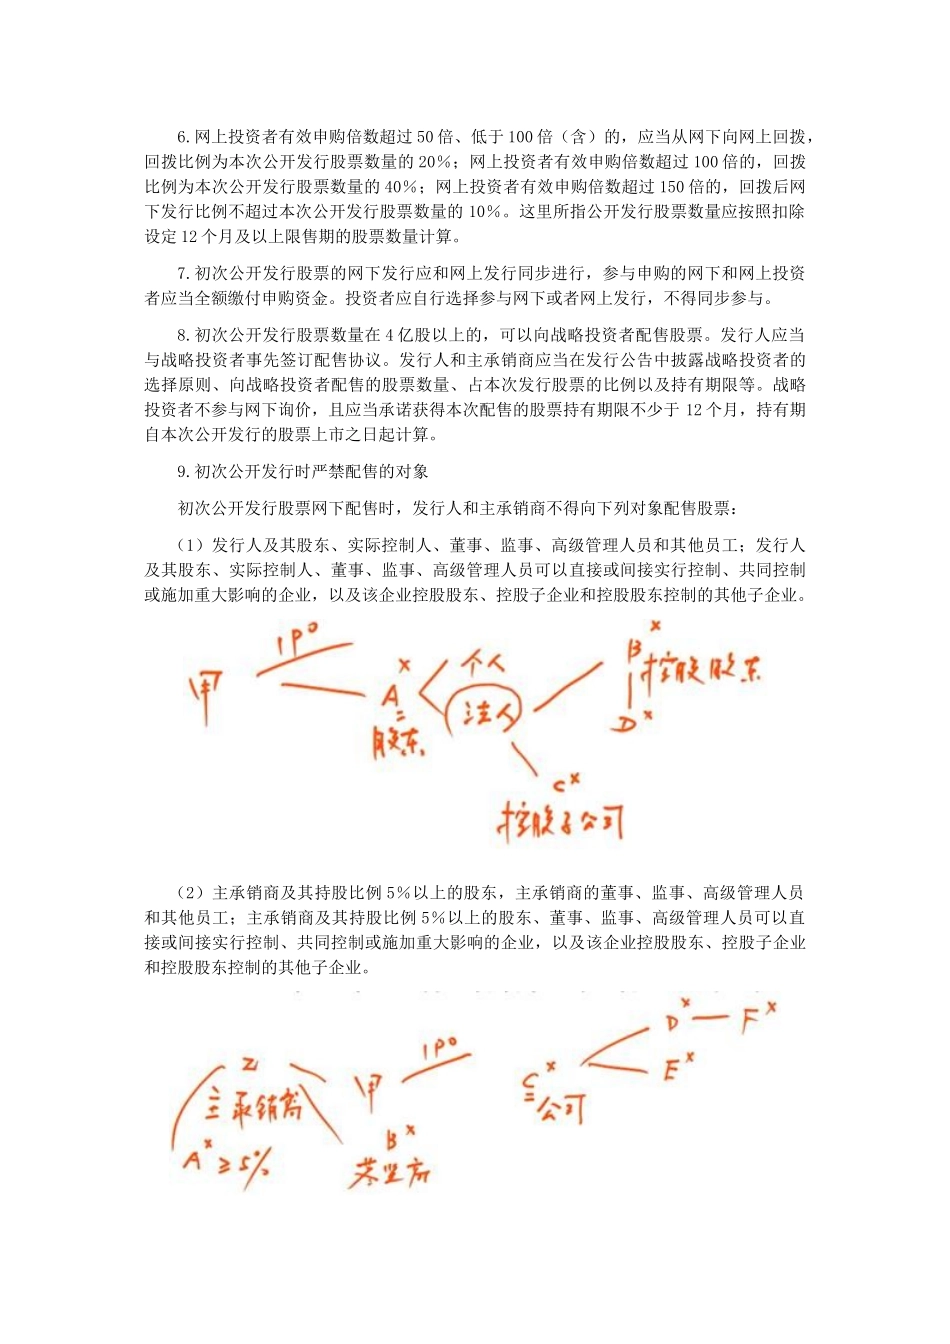 6.网上投资者有效申购倍数超过 50 倍、低于 100 倍（含）的，应当从网下向网上回拨，
回拨比例为本次公开发行股票数量的 20％；网上投资者有效申购倍数超过 100 倍的，回拨
比例为本次公开发行股票数量的 40％；网上投资者有效申购倍数超过 150 倍的，回拨后网
下发行比例不超过本次公开发行股票数量的 10％。这里所指公开发行股票数量应按照扣除
设定 12 个月及以上限售期的股票数量计算。
7.初次公开发行股票的网下发行应和网上发行同步进行，参与申购的网下和网上投资
者应当全额缴付申购资金。投资者应自行选择参与网下或者网上发行，不得同步参与。
8.初次公开发行股票数量在 4 亿股以上的，可以向战略投资者配售股票。发行人应当
与战略投资者事先签订配售协议。发行人和主承销商应当在发行公告中披露战略投资者的
选择原则、向战略投资者配售的股票数量、占本次发行股票的比例以及持有期限等。战略
投资者不参与网下询价，且应当承诺获得本次配售的股票持有期限不少于 12 个月，持有期
自本次公开发行的股票上市之日起计算。
9.初次公开发行时严禁配售的对象
初次公开发行股票网下配售时，发行人和主承销商不得向下列对象配售股票：
（1）发行人及其股东、实际控制人、董事、监事、高级管理人员和其他员工；发行人
及其股东、实际控制人、董事、监事、高级管理人员可以直接或间接实行控制、共同控制
或施加重大影响的企业，以及该企业控股股东、控股子企业和控股股东控制的其他子企业。
IPO
甲
A×
股东
个人
法人
B×
控股股东
D×
C×
控股子公司
（2）主承销商及其持股比例 5％以上的股东，主承销商的董事、监事、高级管理人员
和其他员工；主承销商及其持股比例 5％以上的股东、董事、监事、高级管理人员可以直
接或间接实行控制、共同控制或施加重大影响的企业，以及该企业控股股东、控股子企业
和控股股东控制的其他子企业。
乙
主承销商
A× ≥5%
甲
IPO
B×
董监高
C×
公司
D×
F×
E×